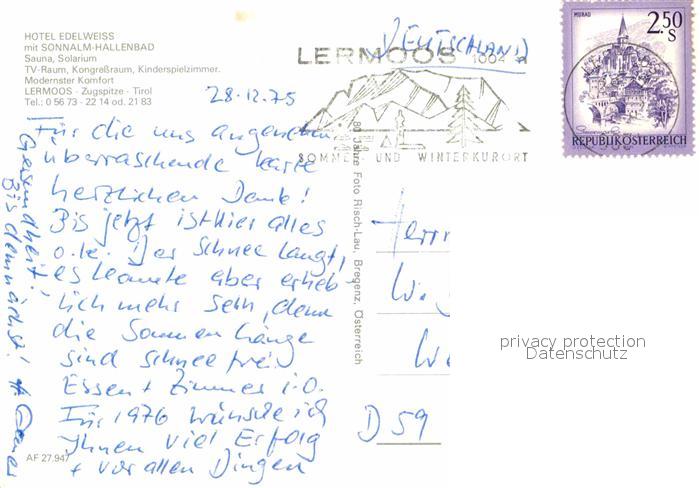 HOTEL EDELWEISS
mit SONNALM-HALLENBAD
Sauna, Solarium
TV-Raum, Kongreßraum, Kinderspielzimmer.
Modernster Komfort
LERMOOS - Zugspitze - Tirol
Tel.: 0 56 73 - 22 14 od. 21 83
28.12.75
Für die uns angenehm
überraschende Karte
herzlichen Dank!
Bis jetzt ist hier alles
o.k. Der Schnee langt,
es könnte aber erheb-
lich mehr sein, denn
die Sonnenhänge
sind schneefrei
Essen + Zimmer i.O.
Für 1976 wünsche ich
Ihnen viel Erfolg
+ vor allen Dingen
Gesundheit!
Bis demnächst!
AF 27.947
80 Jahre Foto Risch-Lau, Bregenz, Österreich
(DEUTSCHLAND)
LERMOOS 1004 m
SOMMER- UND WINTERKURORT
MURAU
2.50 S
REPUBLIK ÖSTERREICH
Herrn
W
W
D 59
privacy protection
Datenschutz